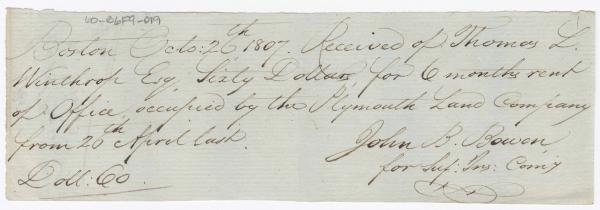 60-B6F9-019
Boston Octo: 26th 1807. Received of Thomas L.
Winthrop Esq. Sixty Dollars, for 6 months rent
of Office, occupied by the Plymouth Land Company
from 26th April last.
John B. Bowen
for Suf: Ins: Comy
Doll: 60.